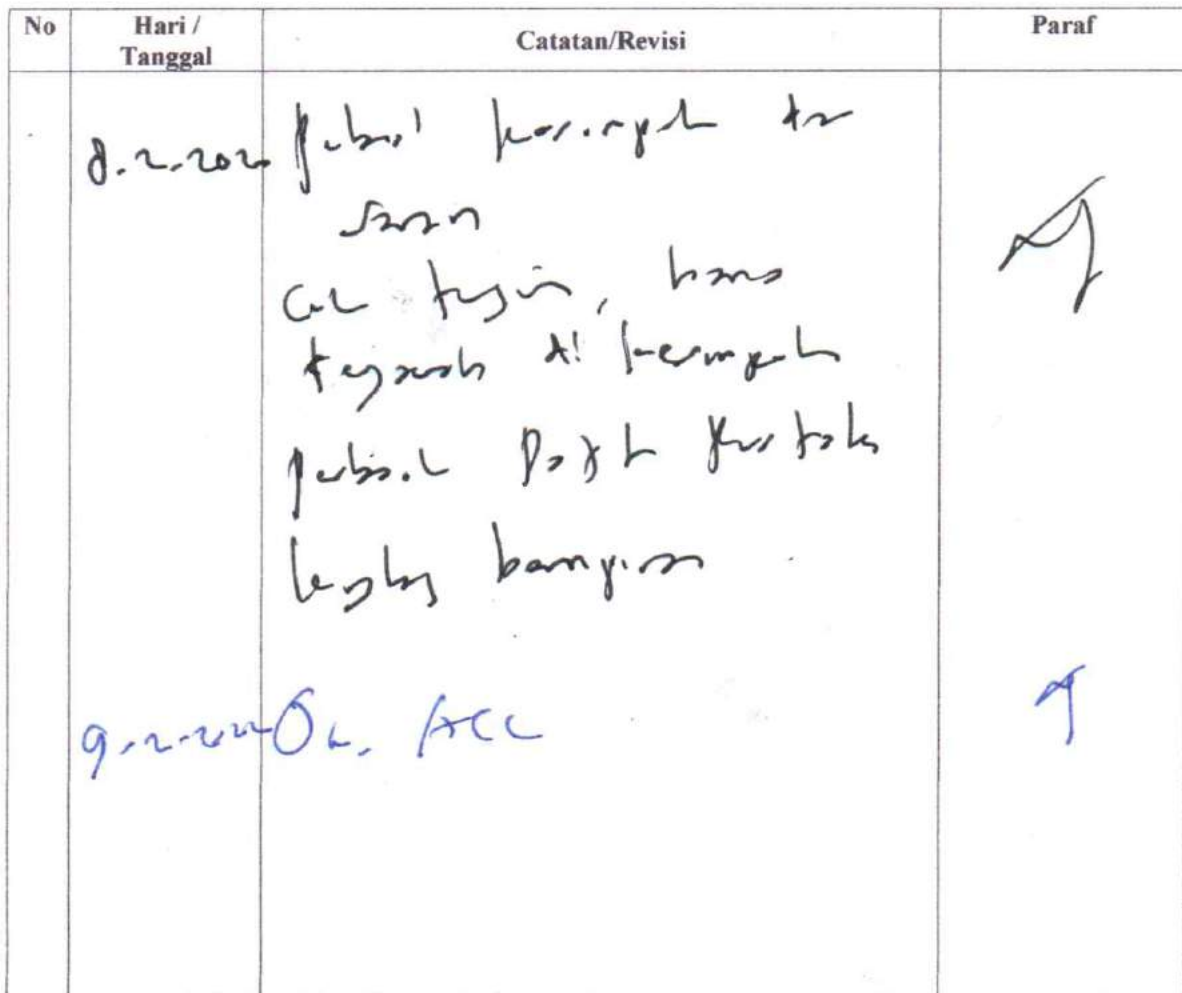 No Hari / Tanggal Catatan/Revisi Paraf
8.2.2020 kesimpulan
saran
Cek tujuan, harus
terjawab di kesimpulan
perbaiki Daftar Pustaka
lengkapi lampiran
9.2.2020 Ok. ACC